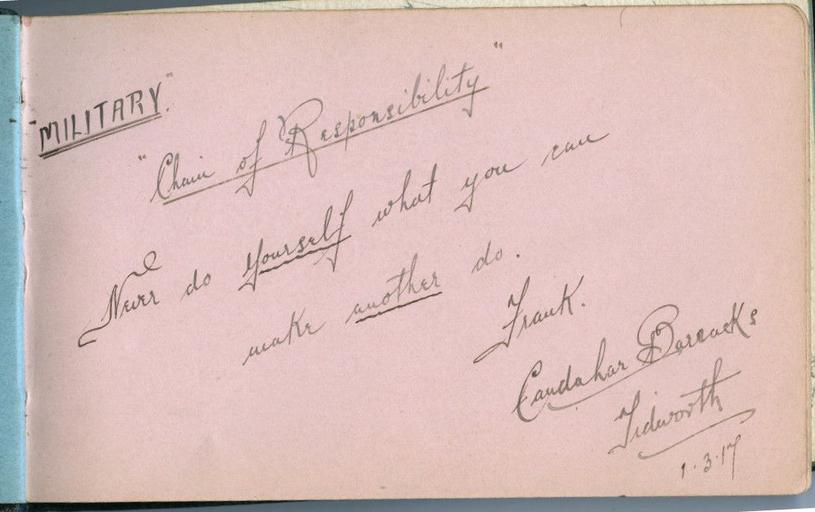 "MILITARY".
"Chain of Responsibility"
Never do yourself what you can
make another do.
Frank.
Candahar Barracks
Tidworth
1.3.17